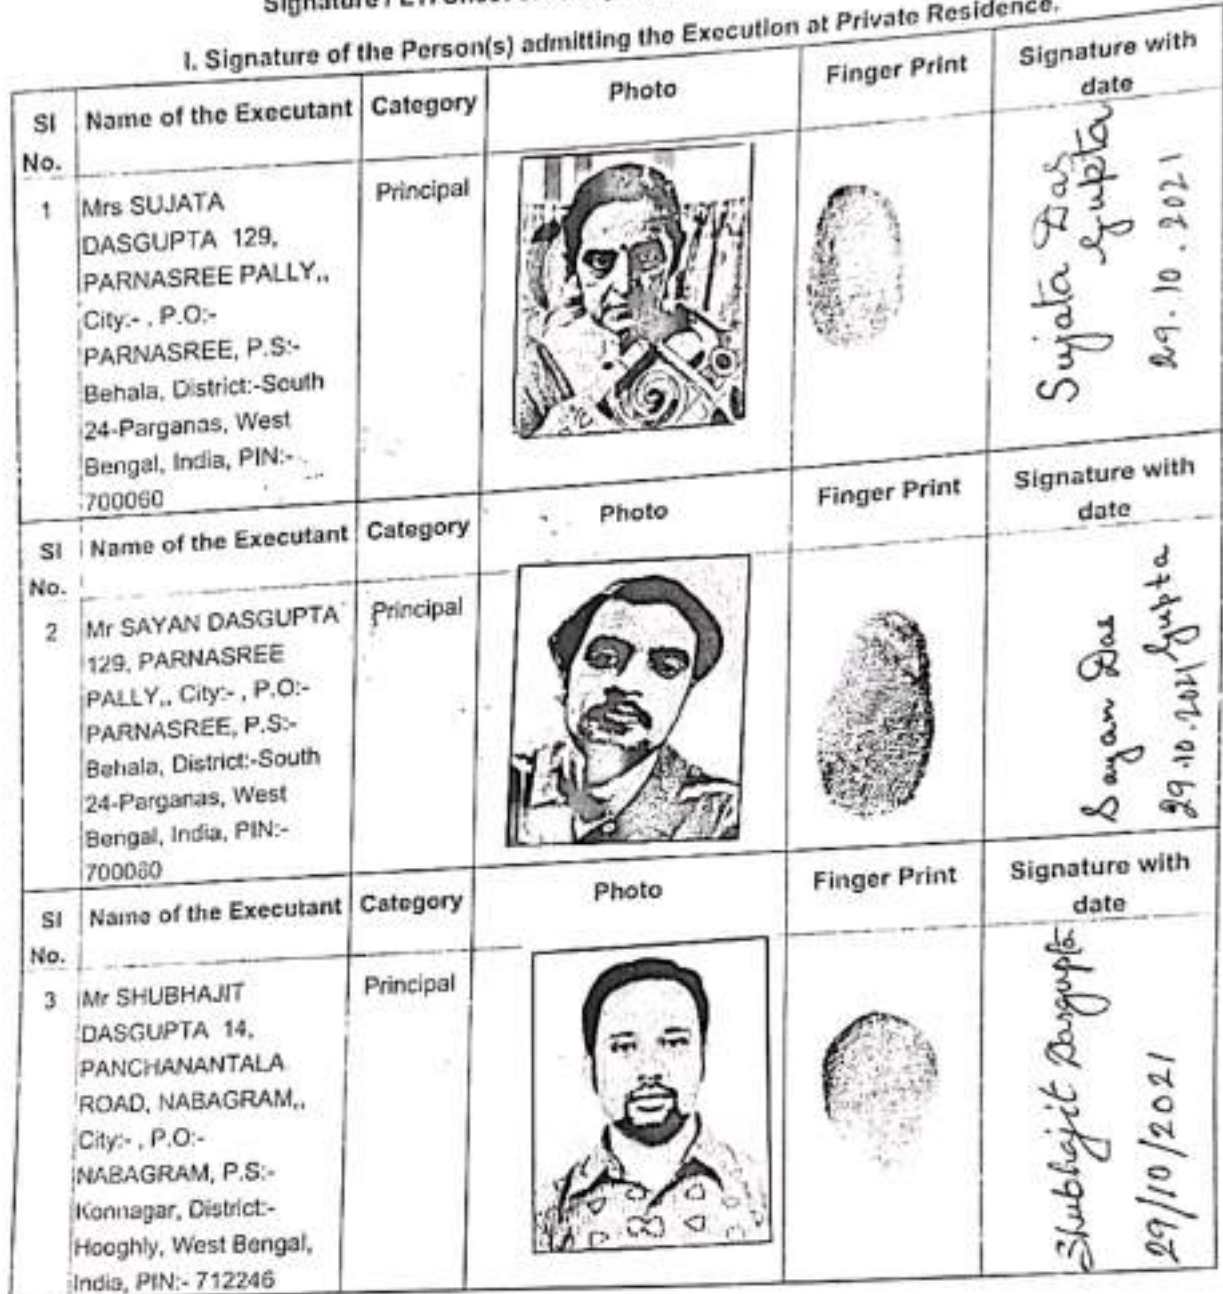 Signature /
I. Signature of the Person(s) admitting the Execution at Private Residence.
Sl No. Name of the Executant Category Photo Finger Print Signature with date
1 Mrs SUJATA Principal
DASGUPTA 129,
PARNASREE PALLY,,
City:- , P.O:-
PARNASREE, P.S:-
Behala, District:-South
24-Parganas, West
Bengal, India, PIN:-
700060
Sujata Das Gupta
29.10.2021
Sl No. Name of the Executant Category Photo Finger Print Signature with date
2 Mr SAYAN DASGUPTA Principal
129, PARNASREE
PALLY,, City:- , P.O:-
PARNASREE, P.S:-
Behala, District:-South
24-Parganas, West
Bengal, India, PIN:-
700060
Sayan Das Gupta
29.10.2021
Sl No. Name of the Executant Category Photo Finger Print Signature with date
3 Mr SHUBHAJIT Principal
DASGUPTA 14,
PANCHANANTALA
ROAD, NABAGRAM,,
City:- , P.O:-
NABAGRAM, P.S:-
Konnagar, District:-
Hooghly, West Bengal,
India, PIN:- 712246
Shubhajit Dasgupta
29/10/2021